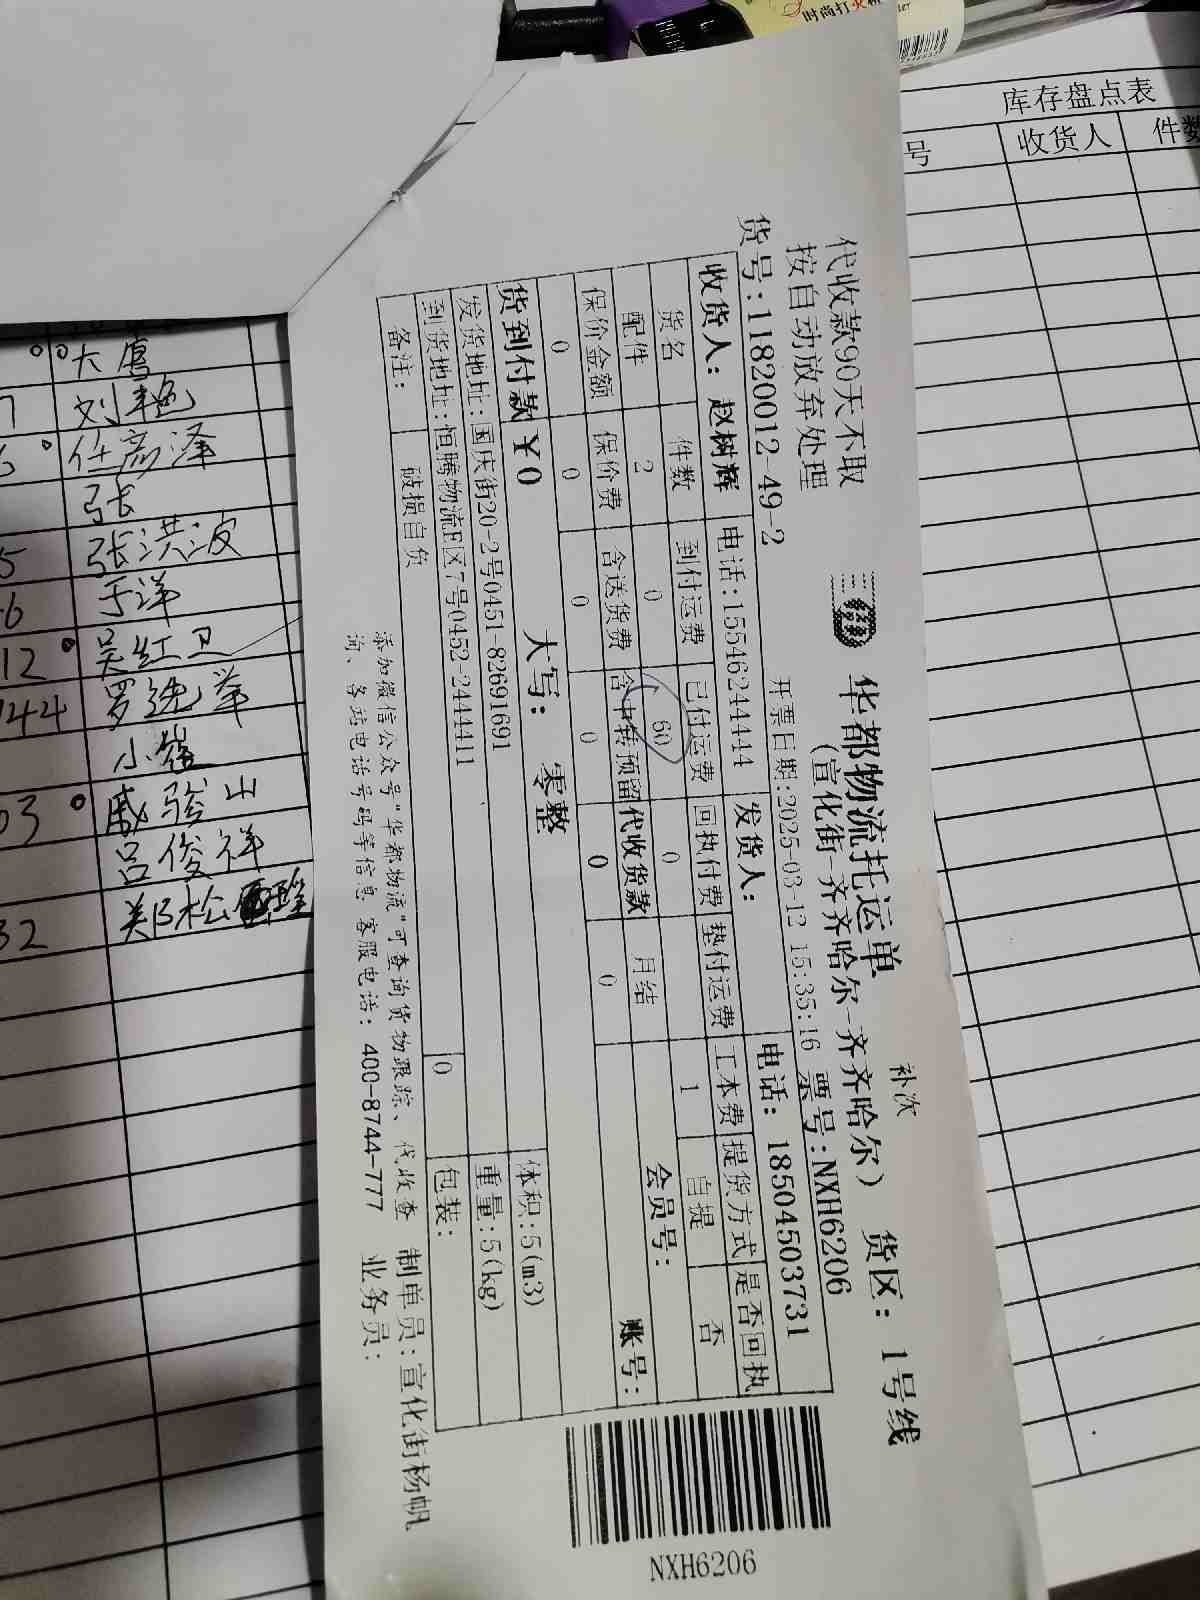 时尚打火机
库存盘点表
号 收货人 件数
代收款90天不取
按自动放弃处理
华都物流托运单
补次
货区：1号线
(宣化街-齐齐哈尔-齐齐哈尔)
货号:11820012-49-2
开票日期:2025-03-12 15:35:16
票号:NXH6206
收货人：赵树辉 电话:15546244444 发货人： 电话：18504503731
货名 件数 到付运费 已付运费 回执付费 垫付运费 工本费 提货方式 是否回执
配件 2 0 60 0 1 自提 否
保价金额 保价费 含送货费 含中转预留 代收货款 月结 会员号：
0 0 0 0 0 0 账号：
货到付款￥0 大写： 零整
体积:5(m3)
发货地址:国庆街20-2号0451-82691691 重量:5(kg)
到货地址:恒腾物流E区7号0452-2444411 0 包装：
备注： 破损自负
添加微信公众号"华都物流"可查询货物跟踪、代收查
询、各站电话号码等信息 客服电话：400-8744-777
制单员：宣化街杨帆
业务员：
NXH6206
大鹰
7 刘艳
任彦泽
张
5 张洪波
6 于洋
12 吴红卫
144 罗选举
小崔
03 戚骏山
吕俊祥
32 郑松